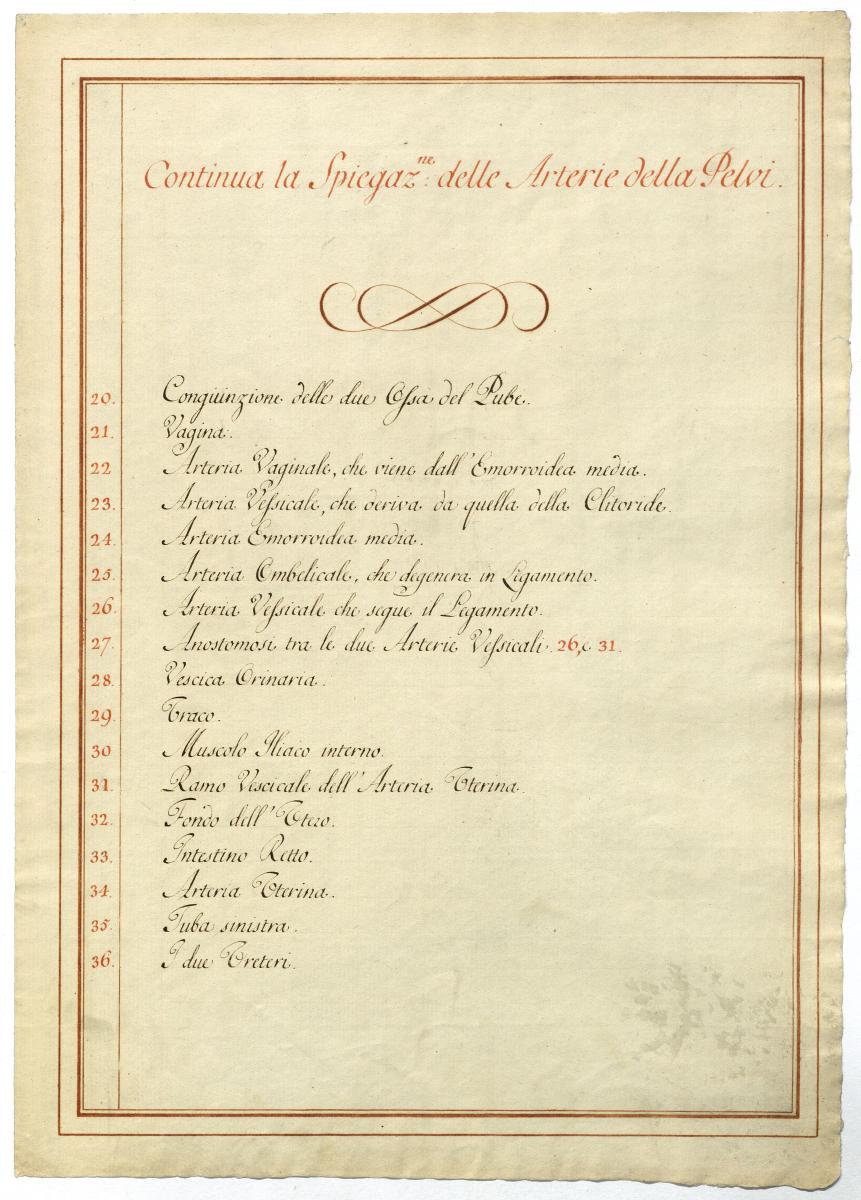 Continua la Spiegaz.ne delle Arterie della Pelvi.
20. Congiunzione delle due Ossa del Pube.
21. Vagina.
22 Arteria Vaginale, che viene dall'Emorroidea media.
23. Arteria Vessicale, che deriva da quella della Clitoride.
24. Arteria Emorroidea media.
25. Arteria Ombelicale, che degenera in Ligamento.
26. Arteria Vessicale che segue il Legamento.
27. Anostomosi tra le due Arterie Vessicali. 26, e 31.
28. Vescica Orinaria.
29. Uraco.
30 Muscolo Iliaco interno.
31. Ramo Vescicale dell'Arteria Uterina.
32. Fondo dell'Utero.
33. Intestino Retto.
34. Arteria Uterina.
35. Tuba sinistra.
36. I due Ureteri.